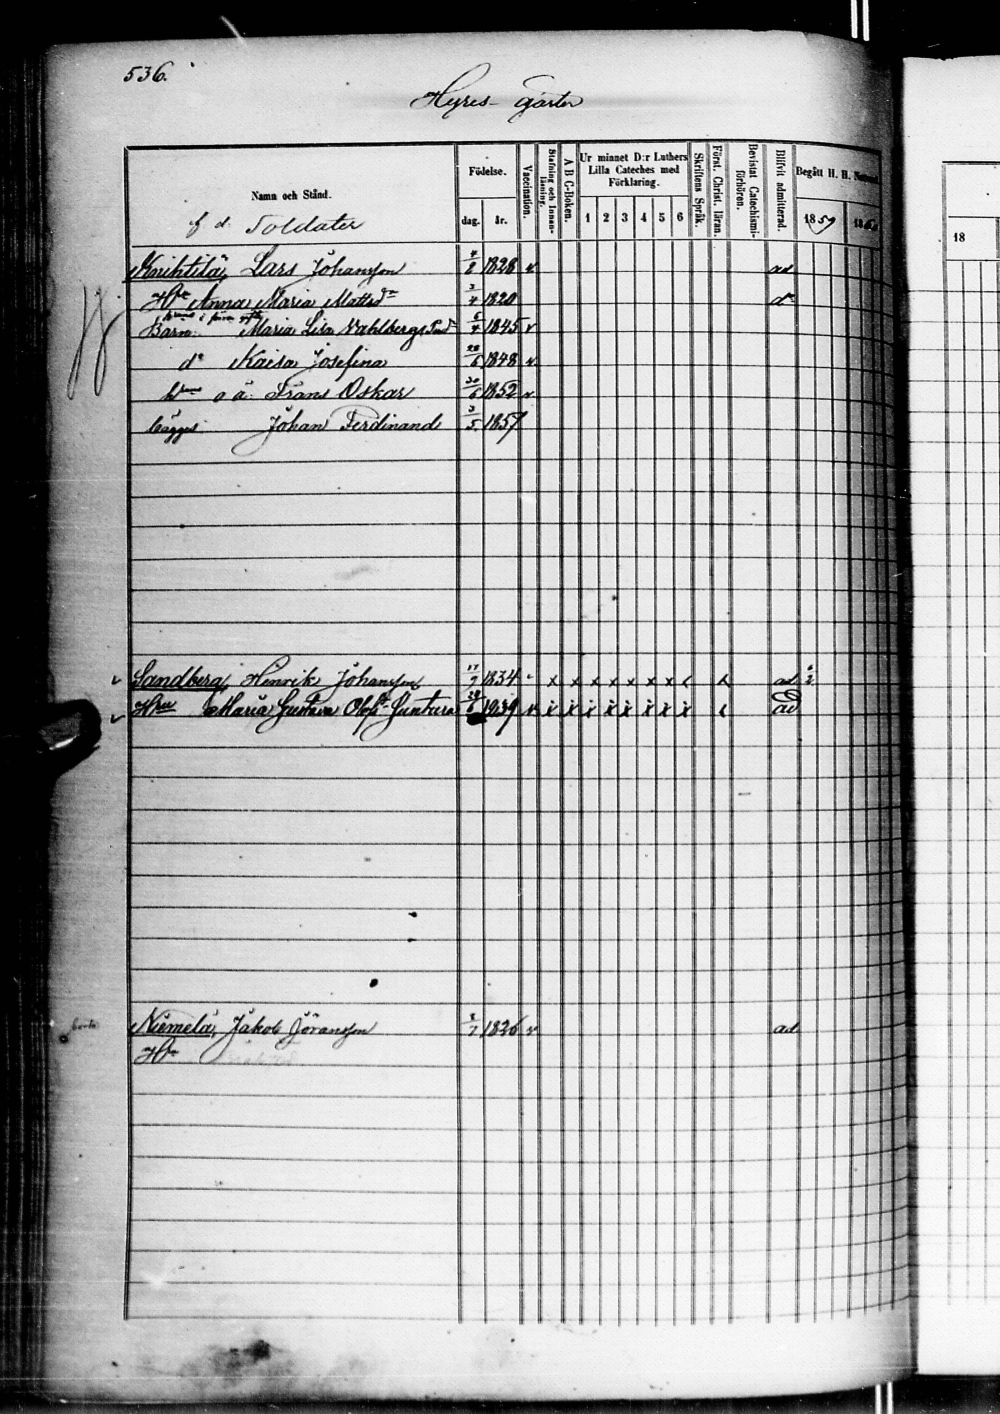 536.
Hyres-gäster
Namn och Stånd.
f d. Soldater
Födelse.
dag. år.
Vaccination.
Stafning och Innanläsning.
A B C-Boken.
Ur minnet D:r Luthers Lilla Cateches med Förklaring.
1 2 3 4 5 6
Skriftens Språk.
Först. Christ. läran.
Bevistat Catechismiförhören.
Blifvit admitterad.
Begått H. H.
1859
18
Knihtilä, Lars Johansson 4/8 1828 v ad
Hu Anna Maria Mattsdr 3/4 1820 do
Barn: Maria Lisa Vahlbergs 5/4 1845 v
do Kaisa Josefina 28/6 1848 v
o ä. Frans Oskar 30/6 1852 v
bägges Johan Ferdinand 3/5 1857
Sandberg, Henrik Johansson 17/7 1834 x x x x x x x ad
Hru Maria Gustava Olofsdr 1839 v x x x x x x x x ad
borta
Niemelä, Jakob Göransson 2/7 1826 v ad
Hu
18